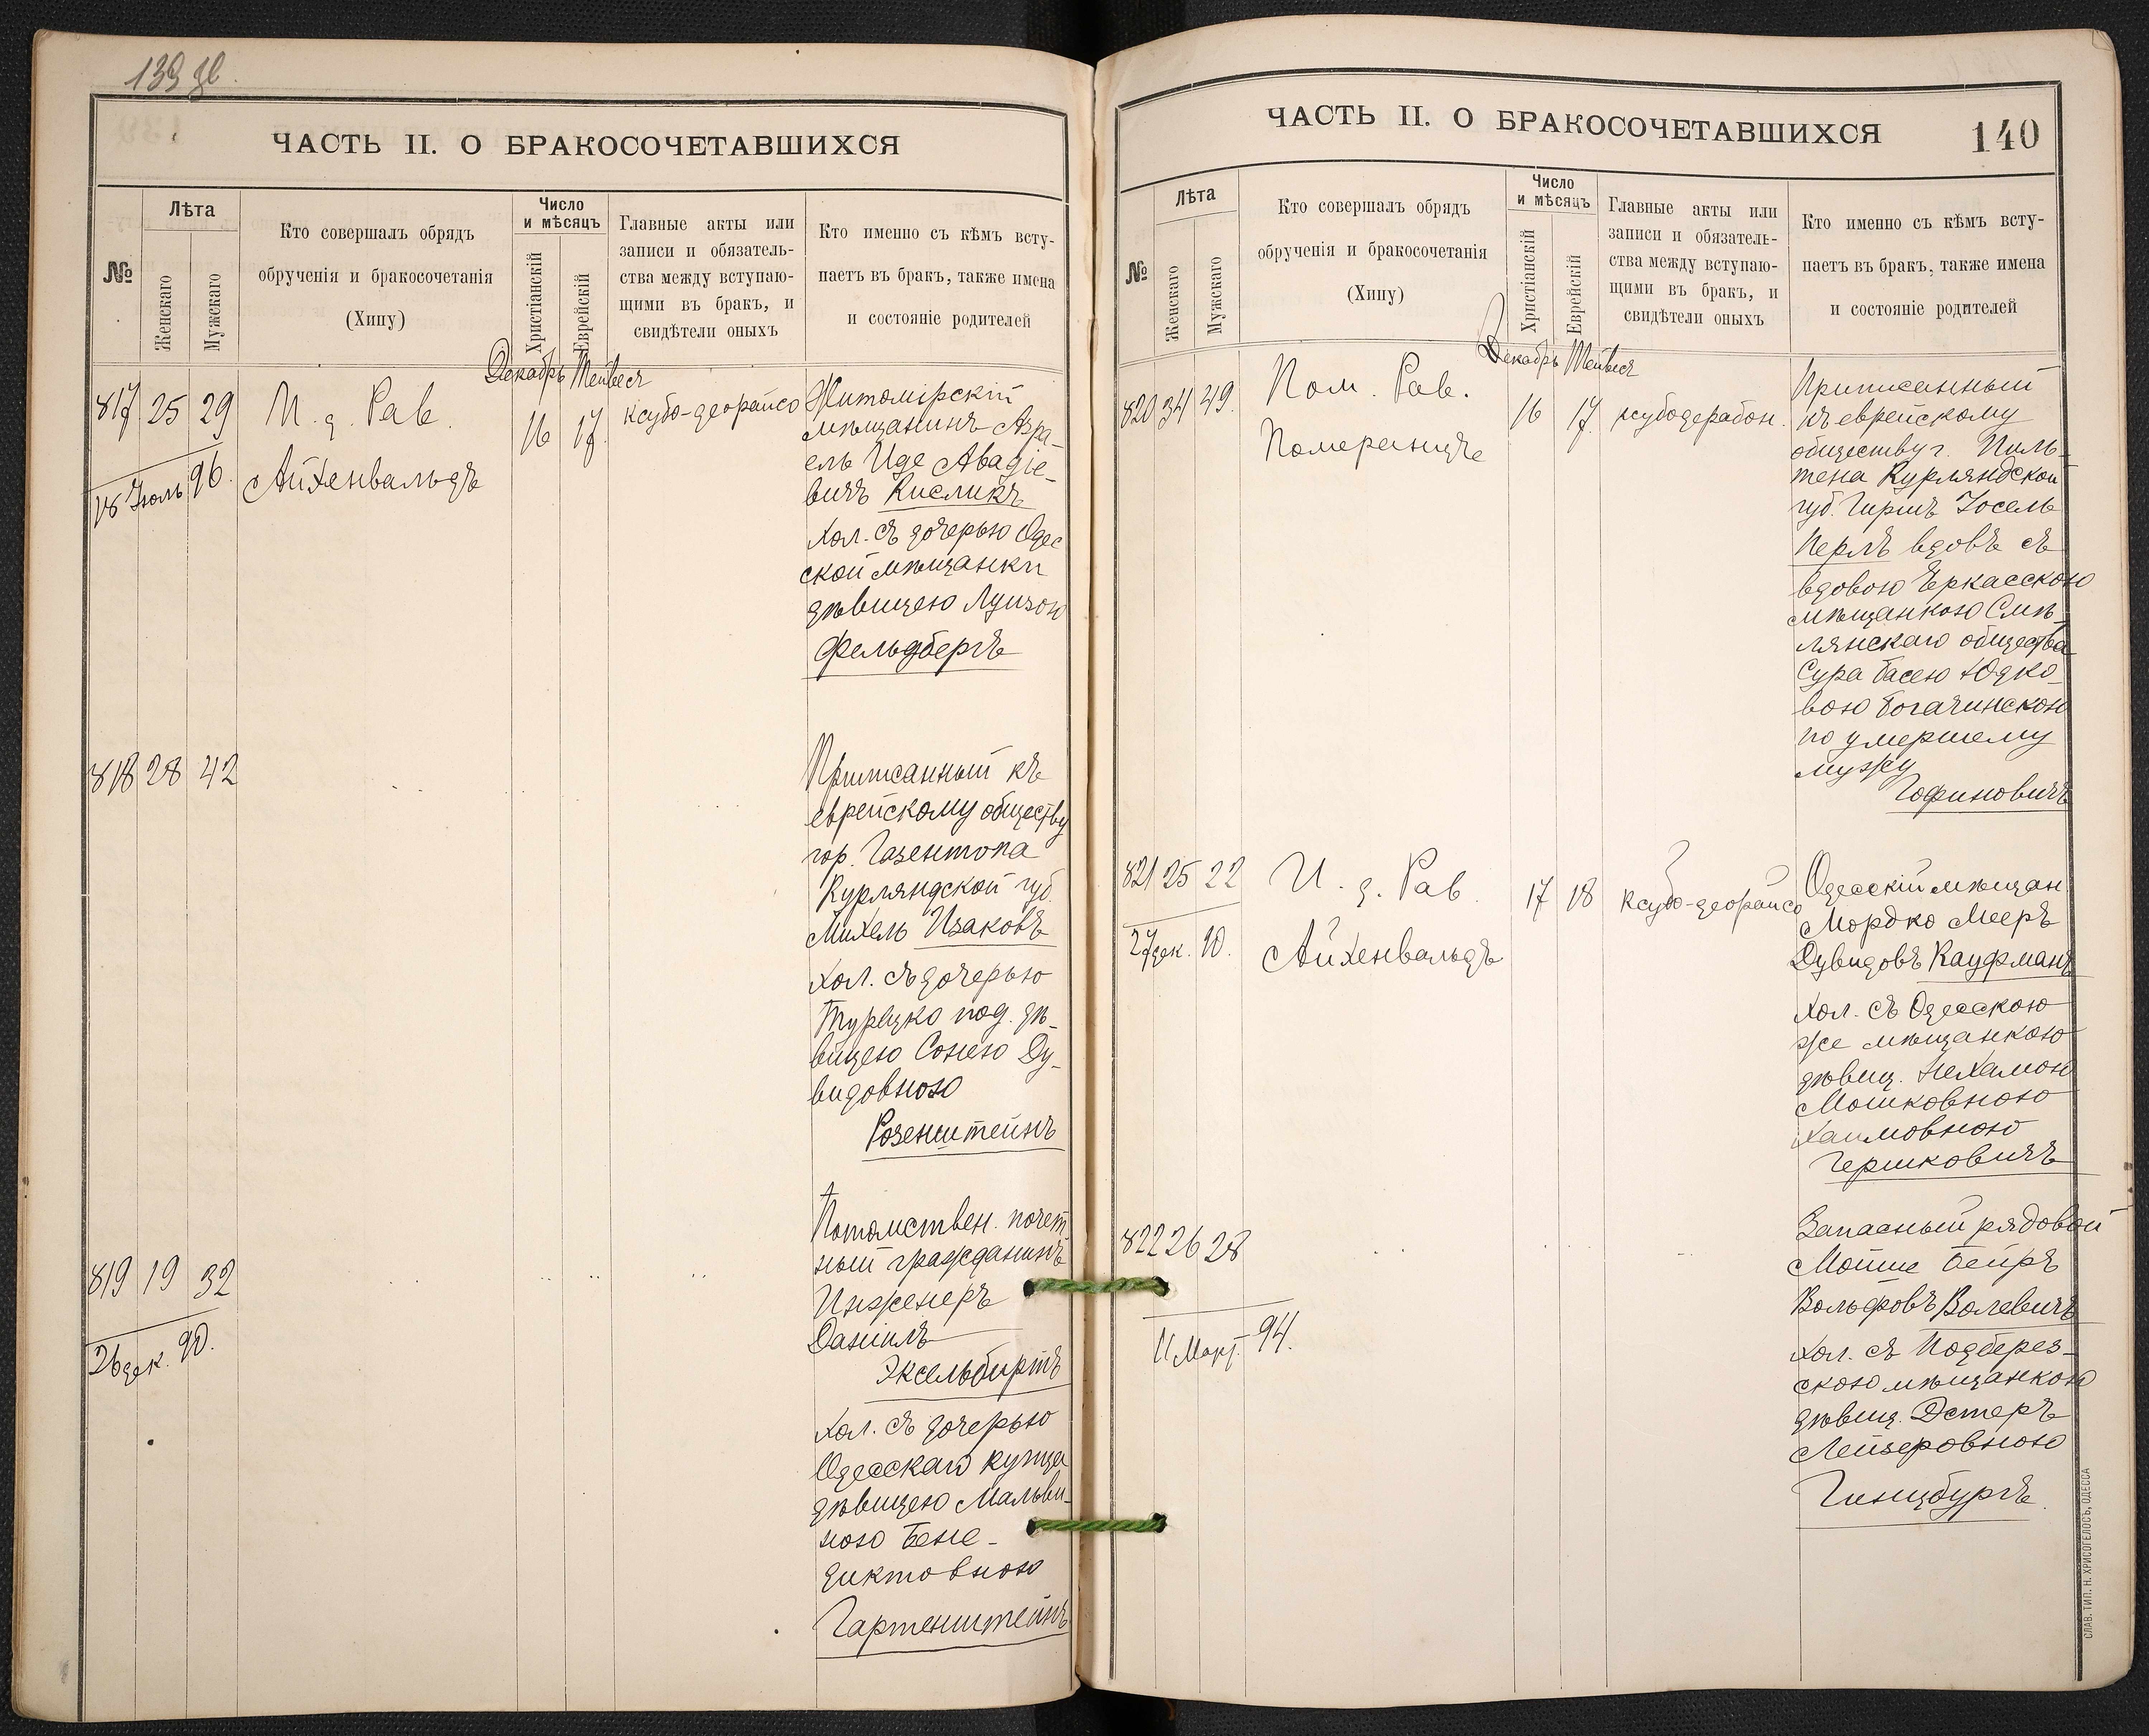 139
ЧАСТЬ II. О БРАКОСОЧЕТАВШИХСЯ
Лѣта
№
Женскаго
Мужскаго
Кто совершалъ обрядъ
обрученія и бракосочетанія
(Хипу)
Число
и мѣсяцъ
Христіанскій
Еврейскій
Главные акты или
записи и обязатель-
ства между вступаю-
щими въ бракъ, и
свидѣтели оныхъ
Кто именно съ кѣмъ всту-
паетъ въ бракъ, также имена
и состояніе родителей
Декабрь Тейвесъ
817 25 29
И. д. Рав.
Айхенвальдъ
16 17
ксубо-деорайсо
18 Іюль 96.
Житомірскій
мѣщанинъ Азра-
ель Иде Авадіе-
вичъ Кисликъ
хол. съ дочерью Одес
ской мѣщанки
дѣвицею Луизою
Фельдбергъ
818 28 42
Приписанный къ
еврейскому обществу
гор. Газентопа
Курляндской губ.
Михель Изаковъ
хол. съ дочерью
Турецко под. дѣ-
вицею Сонею Ду-
видовною
Розенштейнъ
819 19 32
26 дек. 90.
Потомствен. почет
ный гражданинъ
Инженеръ
Даніилъ
Эксельбиртъ
хол. съ дочерью
Одесскаго купца
дѣвицею Мальви-
ною Бене-
диктовною
Гартенштейнъ
ЧАСТЬ II. О БРАКОСОЧЕТАВШИХСЯ
140
Лѣта
№
Женскаго
Мужскаго
Кто совершалъ обрядъ
обрученія и бракосочетанія
(Хипу)
Число
и мѣсяцъ
Христіанскій
Еврейскій
Главные акты или
записи и обязатель-
ства между вступаю-
щими въ бракъ, и
свидѣтели оныхъ
Кто именно съ кѣмъ всту-
паетъ въ бракъ, также имена
и состояніе родителей
Декабрь Тейвесъ
820 34 49.
Пом. Рав.
Померанцъ
16 17
ксубодерабон.
Приписанный
къ еврейскому
обществу г. Пиль-
тена Курляндской
губ. Гиршъ Іосель
Перлъ вдовъ съ
вдовою Черкасскою
мѣщанкою Смѣ-
лянскаго общества
Сура Басею Юдко-
вою Богачинскою
по умершему
мужу
Гофиновичъ
821 25 22
И. д. Рав.
Айхенвальдъ
17 18
ксубо-деорайсо
27 дек. 90.
Одесскій мѣщан.
Мордко Мееръ
Дувидовъ Кауфманъ
хол. съ Одесскою
же мѣщанкою
дѣвиц. Нехамою
Мошковною
Хаимовною
Гершковичъ
822 26 28
11 Март. 94.
Запасный рядовой
Мойше Бейръ
Вольфовъ Волевичъ
хол. съ Подберез-
скою мѣщанкою
дѣвиц. Эстеръ
Лейзеровною
Гинцбургъ
СЛАВ. ТИП. Н. ХРИСОГЕЛОСЪ, ОДЕССА